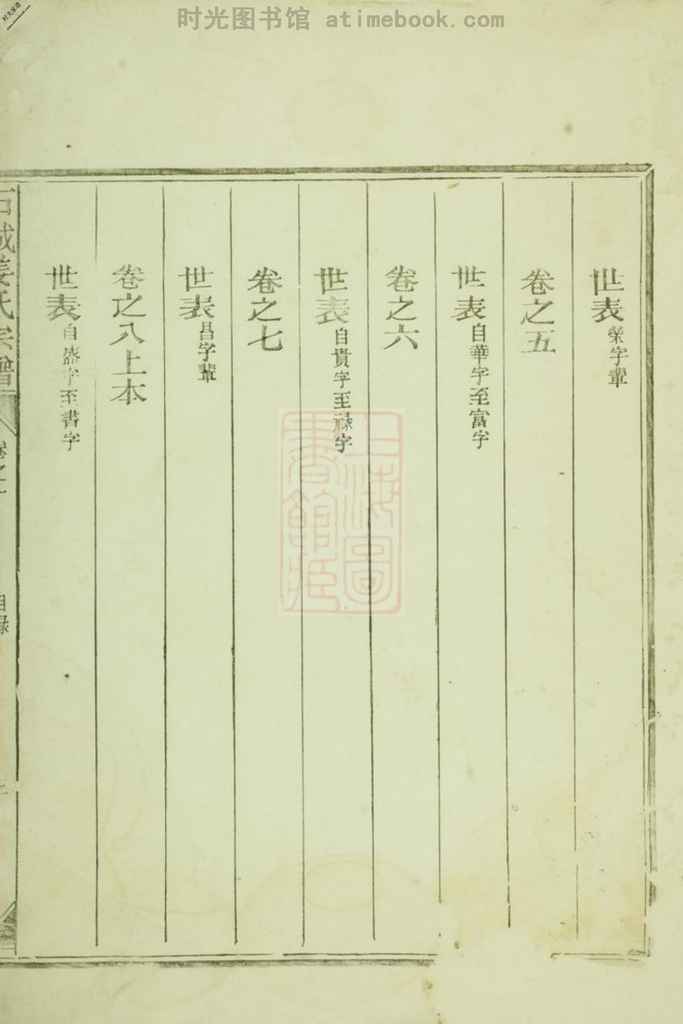 时光图书馆 atimebook.com
世表 榮字輩
卷之五
世表 自華字至富字
卷之六
世表 自貴字至祿字
卷之七
世表 昌字輩
卷之八上本
世表 自盛字至書字
石城姜氏宗譜
目錄
上海圖
書館藏